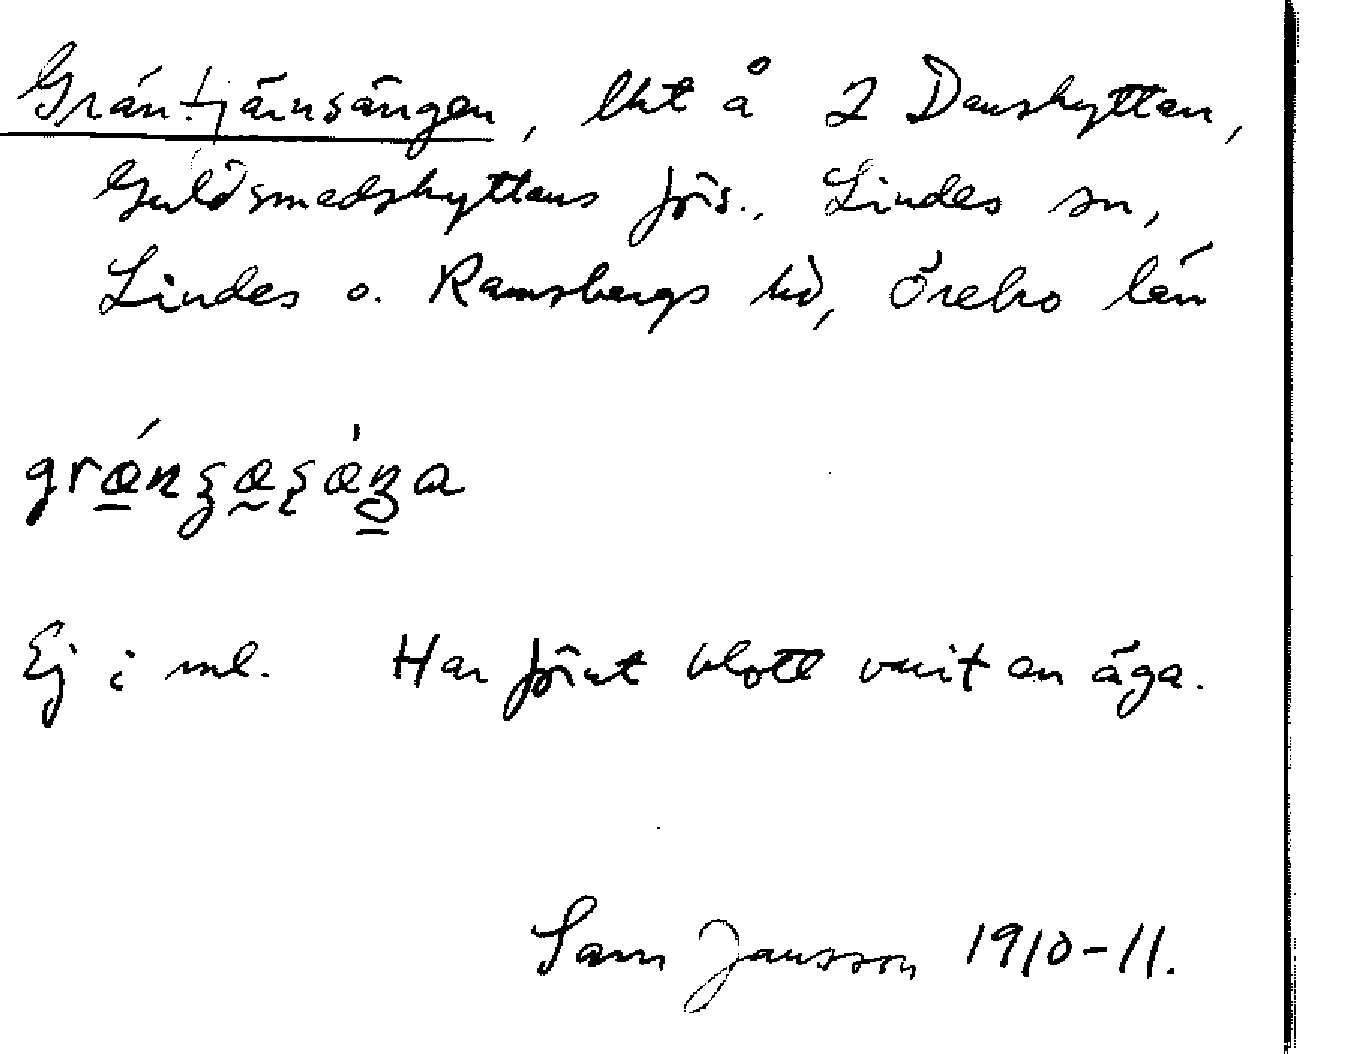 Gräntjärnsängen, lht å 2 Danshyttan,
Guldsmedshyttans jfrs., Lindes sn,
Lindes o. Ramsbergs hd, Örebro län
Ej i ml. Har förut blott varit en äga.
Sam Jansson 1910-11.